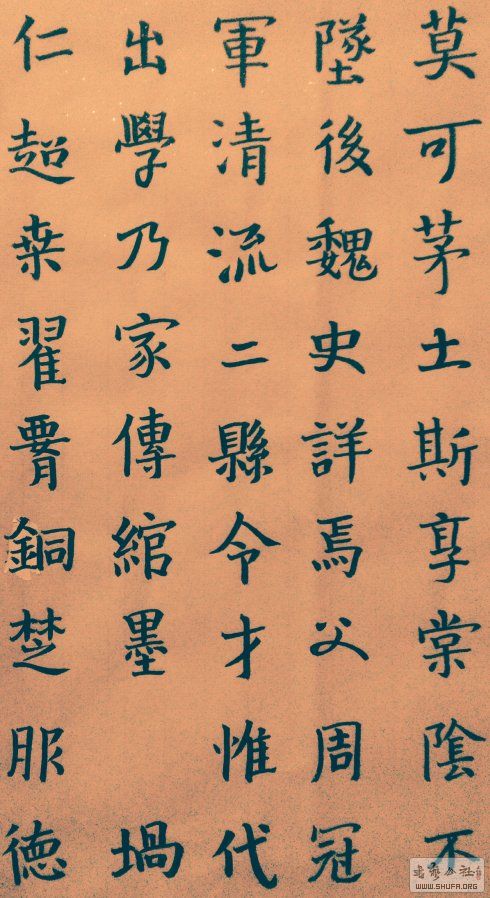 莫可茅土斯享棠陰不
墜後魏史詳焉父周冠
軍清流二縣令才惟代
出學乃家傳綰墨堝
仁超桒翟銅楚服德
WWW.SHUFA.ORG